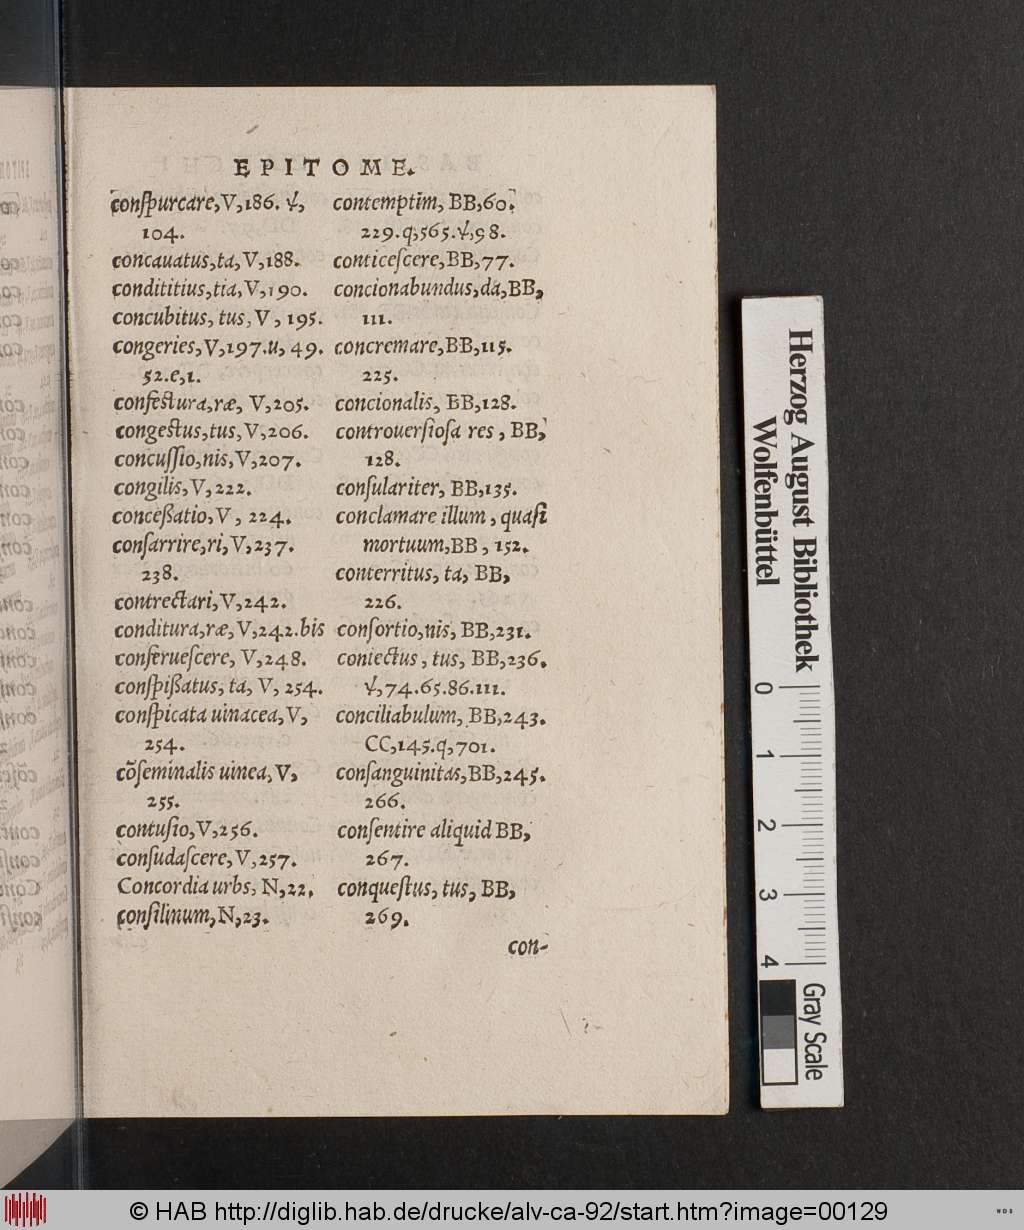 EPITOME.
conſpurcare,V,186. ψ,
104.
concauatus,ta,V,188.
condititius,tia,V,190.
concubitus, tus, V, 195.
congeries,V,197.u, 49.
52.e,1.
confectura,ræ, V,205.
congestus,tus,V,206.
concuſſio,nis,V,207.
congilis,V,222.
conceßatio,V, 224.
conſarrire,ri,V,237.
238.
contrectari,V,242.
conditura,ræ,V,242.bis
conferueſcere, V,248.
conſpißatus, ta, V, 254.
conſpicata uinacea,V,
254.
cõſeminalis uinea,V,
255.
contuſio,V,256.
conſudaſcere,V,257.
Concordia urbs, N,22,
conſilinum,N,23.
contemptim, BB,60.
229.q,565.ψ,98.
conticeſcere,BB,77.
concionabundus,da,BB,
111.
concremare,BB,115.
225.
concionalis, BB,128.
controuerſioſa res, BB,
128.
conſulariter, BB,135.
conclamare illum, quaſi
mortuum,BB, 152.
conterritus, ta, BB,
226.
conſortio,nis, BB,231.
coniectus, tus, BB,236.
ψ,74.65.86.111.
conciliabulum, BB,243.
CC,145.q,701.
conſanguinitas,BB,245.
266.
conſentire aliquid BB,
267.
conqueſtus, tus, BB,
269.
con-
Herzog August Bibliothek
Wolfenbüttel
0 1 2 3 4
Gray Scale
© HAB http://diglib.hab.de/drucke/alv-ca-92/start.htm?image=00129